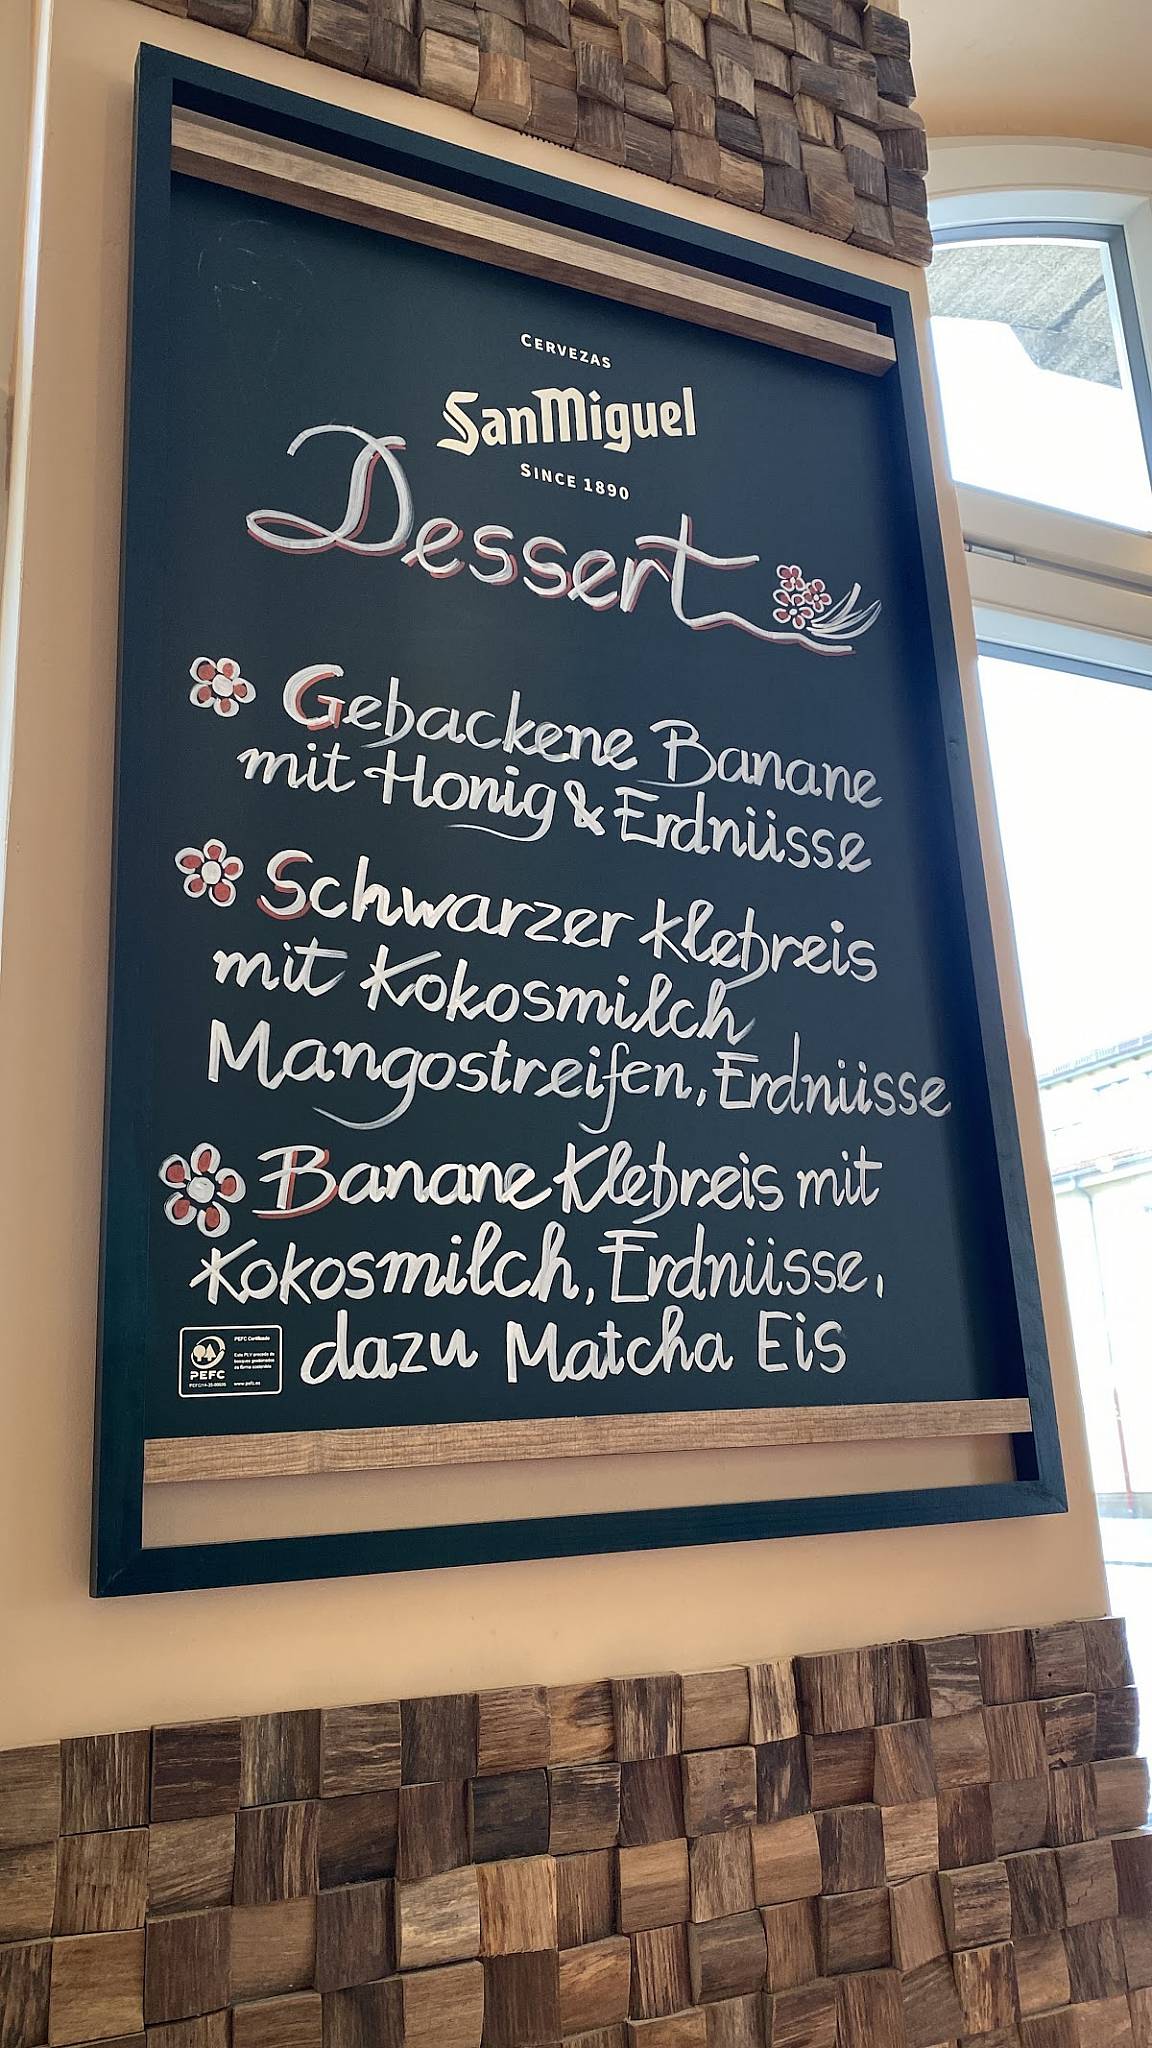 CERVEZAS
SanMiguel
SINCE 1890
Dessert
Gebackene Banane
mit Honig & Erdnüsse
Schwarzer Klebreis
mit Kokosmilch
Mangostreifen, Erdnüsse
Banane Klebreis mit
Kokosmilch, Erdnüsse,
dazu Matcha Eis
PEFC Certificado
PEFC
www.pefc.es